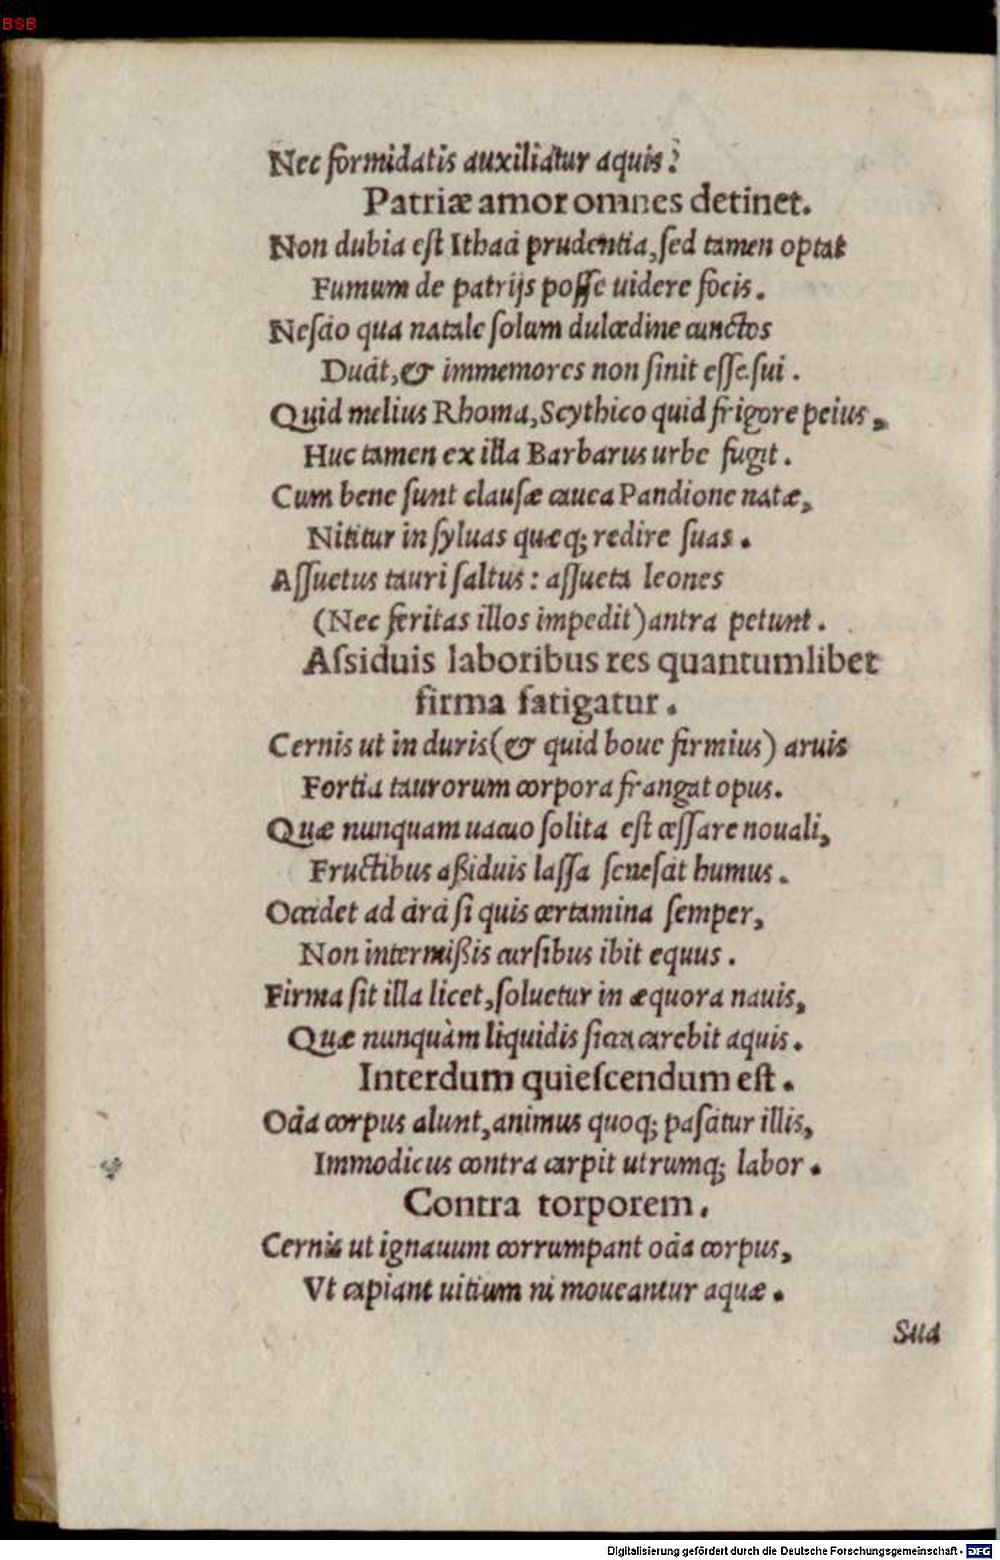 BSB
Nec formidatis auxiliatur aquis?
Patriæ amor omnes detinet.
Non dubia eſt Ithaci prudentia, ſed tamen optat
Fumum de patrijs poſſe uidere focis.
Neſcio qua natale ſolum dulcedine cunctos
Ducit, & immemores non ſinit eſſe ſui.
Quid melius Rhoma, Scythico quid frigore peius,
Huc tamen ex illa Barbarus urbe fugit.
Cum bene ſunt clauſæ cauea Pandione natæ,
Nititur in ſyluas quæq; redire ſuas.
Aſſuetus tauri ſaltus: aſſueta leones
(Nec feritas illos impedit) antra petunt.
Aſsiduis laboribus res quantumlibet
firma fatigatur.
Cernis ut in duris (& quid boue firmius) aruis
Fortia taurorum corpora frangat opus.
Quæ nunquam uacuo ſolita eſt ceſſare nouali,
Fructibus aßiduis laſſa ſeneſcit humus.
Occidet ad circi ſi quis certamina ſemper,
Non intermißis curſibus ibit equus.
Firma ſit illa licet, ſoluetur in æquora nauis,
Quæ nunquàm liquidis ſicca carebit aquis.
Interdum quieſcendum eſt.
Ocia corpus alunt, animus quoq; paſcitur illis,
Immodicus contra carpit utrumq; labor.
Contra torporem.
Cernis ut ignauum corrumpant ocia corpus,
Vt capiant uitium ni moueantur aquæ.
Sua
Digitalisierung gefördert durch die Deutsche Forschungsgemeinschaft - DFG